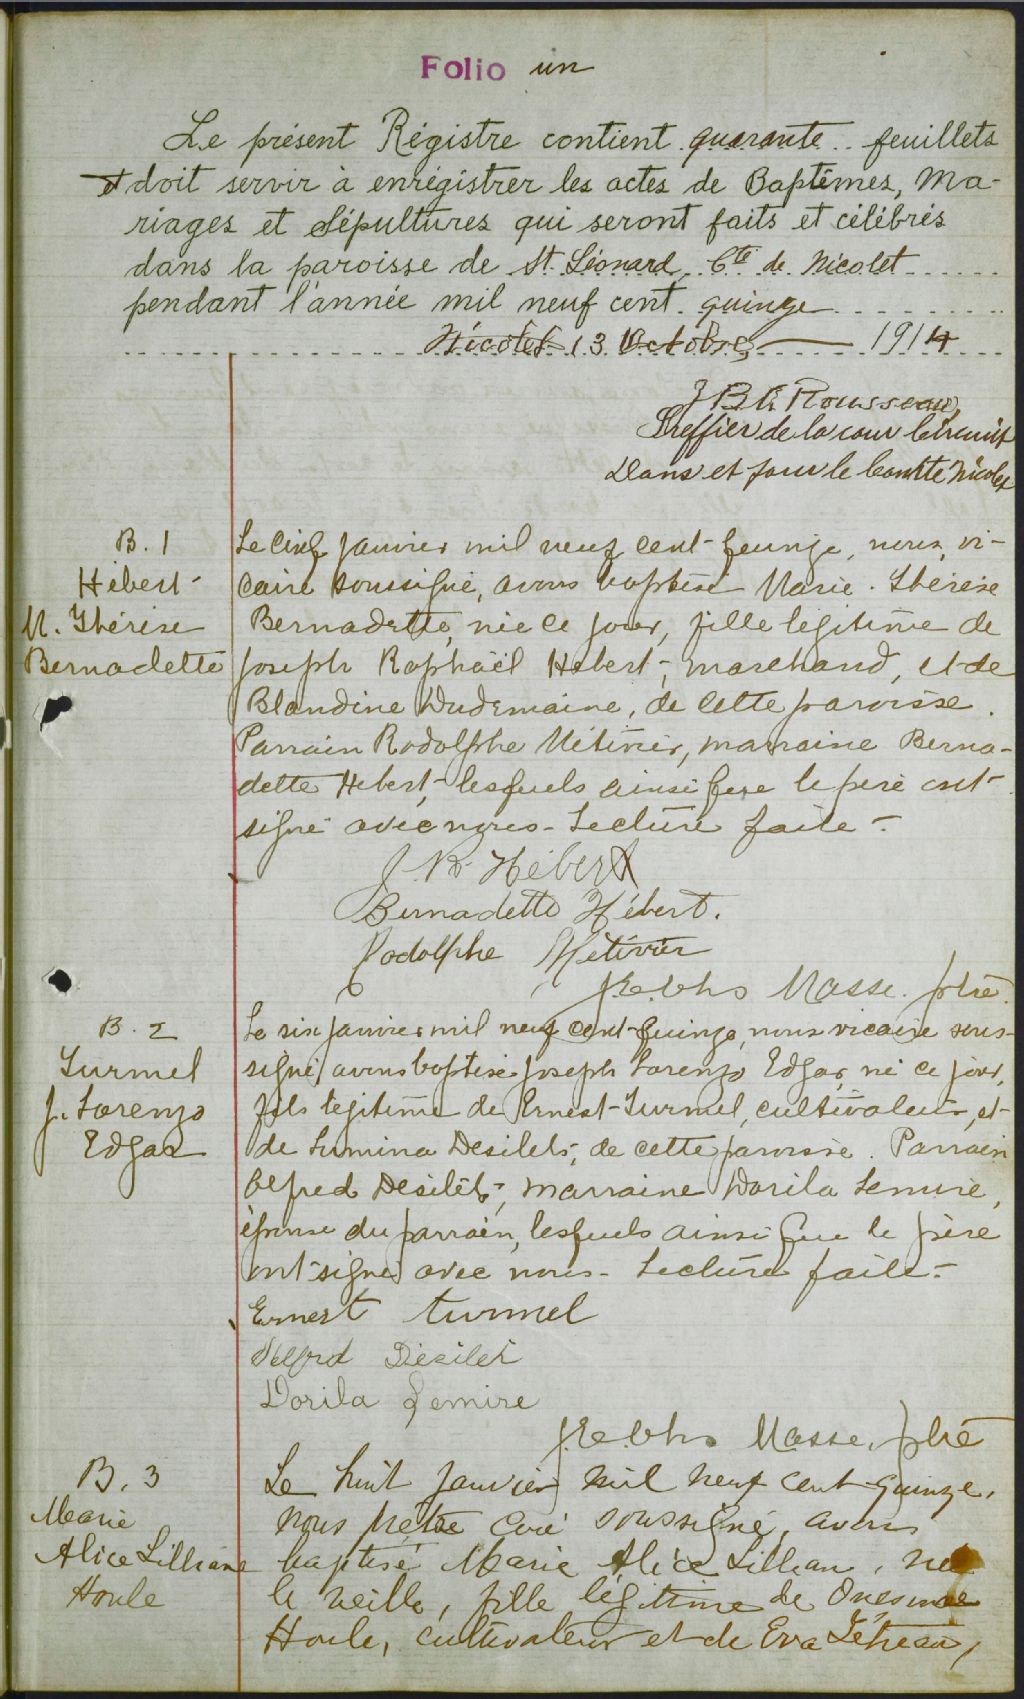 Folio un
Le présent Régistre contient quarante feuillets
et doit servir à enrégistrer les actes de Baptêmes, Ma-
riages et Sépultures qui seront faits et célébrés
dans la paroisse de St. Léonard, Cté de Nicolet
pendant l'année mil neuf cent quinze
Nicolet 13 Octobre 1914
Rousseau,
Greffier de la cour Circuit
Dans et pour le Comtte Nicolet
B. 1
Hébert
M. Thérèse
Bernadette
Le cinq janvier mil neuf cent quinze, nous, vi-
caire soussigné, avons baptisé Marie Thérèse
Bernadette, née ce jour, fille légitime de
Joseph Raphaël Hébert, marchand, et de
Blandine Dudemaine, de cette paroisse.
Parrain Rodolphe Métivier, marraine Berna-
dette Hébert, lesquels ainsi que le père ont
signé avec nous. Lecture faite.
J. R. Hébert
Bernadette Hébert.
Rodolphe Métivier
Masse, ptre
B. 2
Turmel
J. Lorenzo
Edgar
Le six janvier mil neuf cent quinze, nous vicaire sous-
signé avons baptisé Joseph Lorenzo Edgar, né ce jour,
fils légitime de Ernest Turmel, cultivateur, et
de Lumina Desilets, de cette paroisse. Parrain
Delfred Desilets, marraine Dorila Lemire,
épouse du parrain, lesquels ainsi que le père
ont signé avec nous. Lecture faite.
Ernest turmel
Désilet
Dorila Lemire
Masse, ptre
B. 3
Marie
Alice Lilliane
Houle
Le huit janvier mil neuf cent quinze,
nous prêtre curé soussigné, avons
baptisé Marie Alice Lillian, née
la veille, fille légitime de Onésime
Houle, cultivateur et de Eva